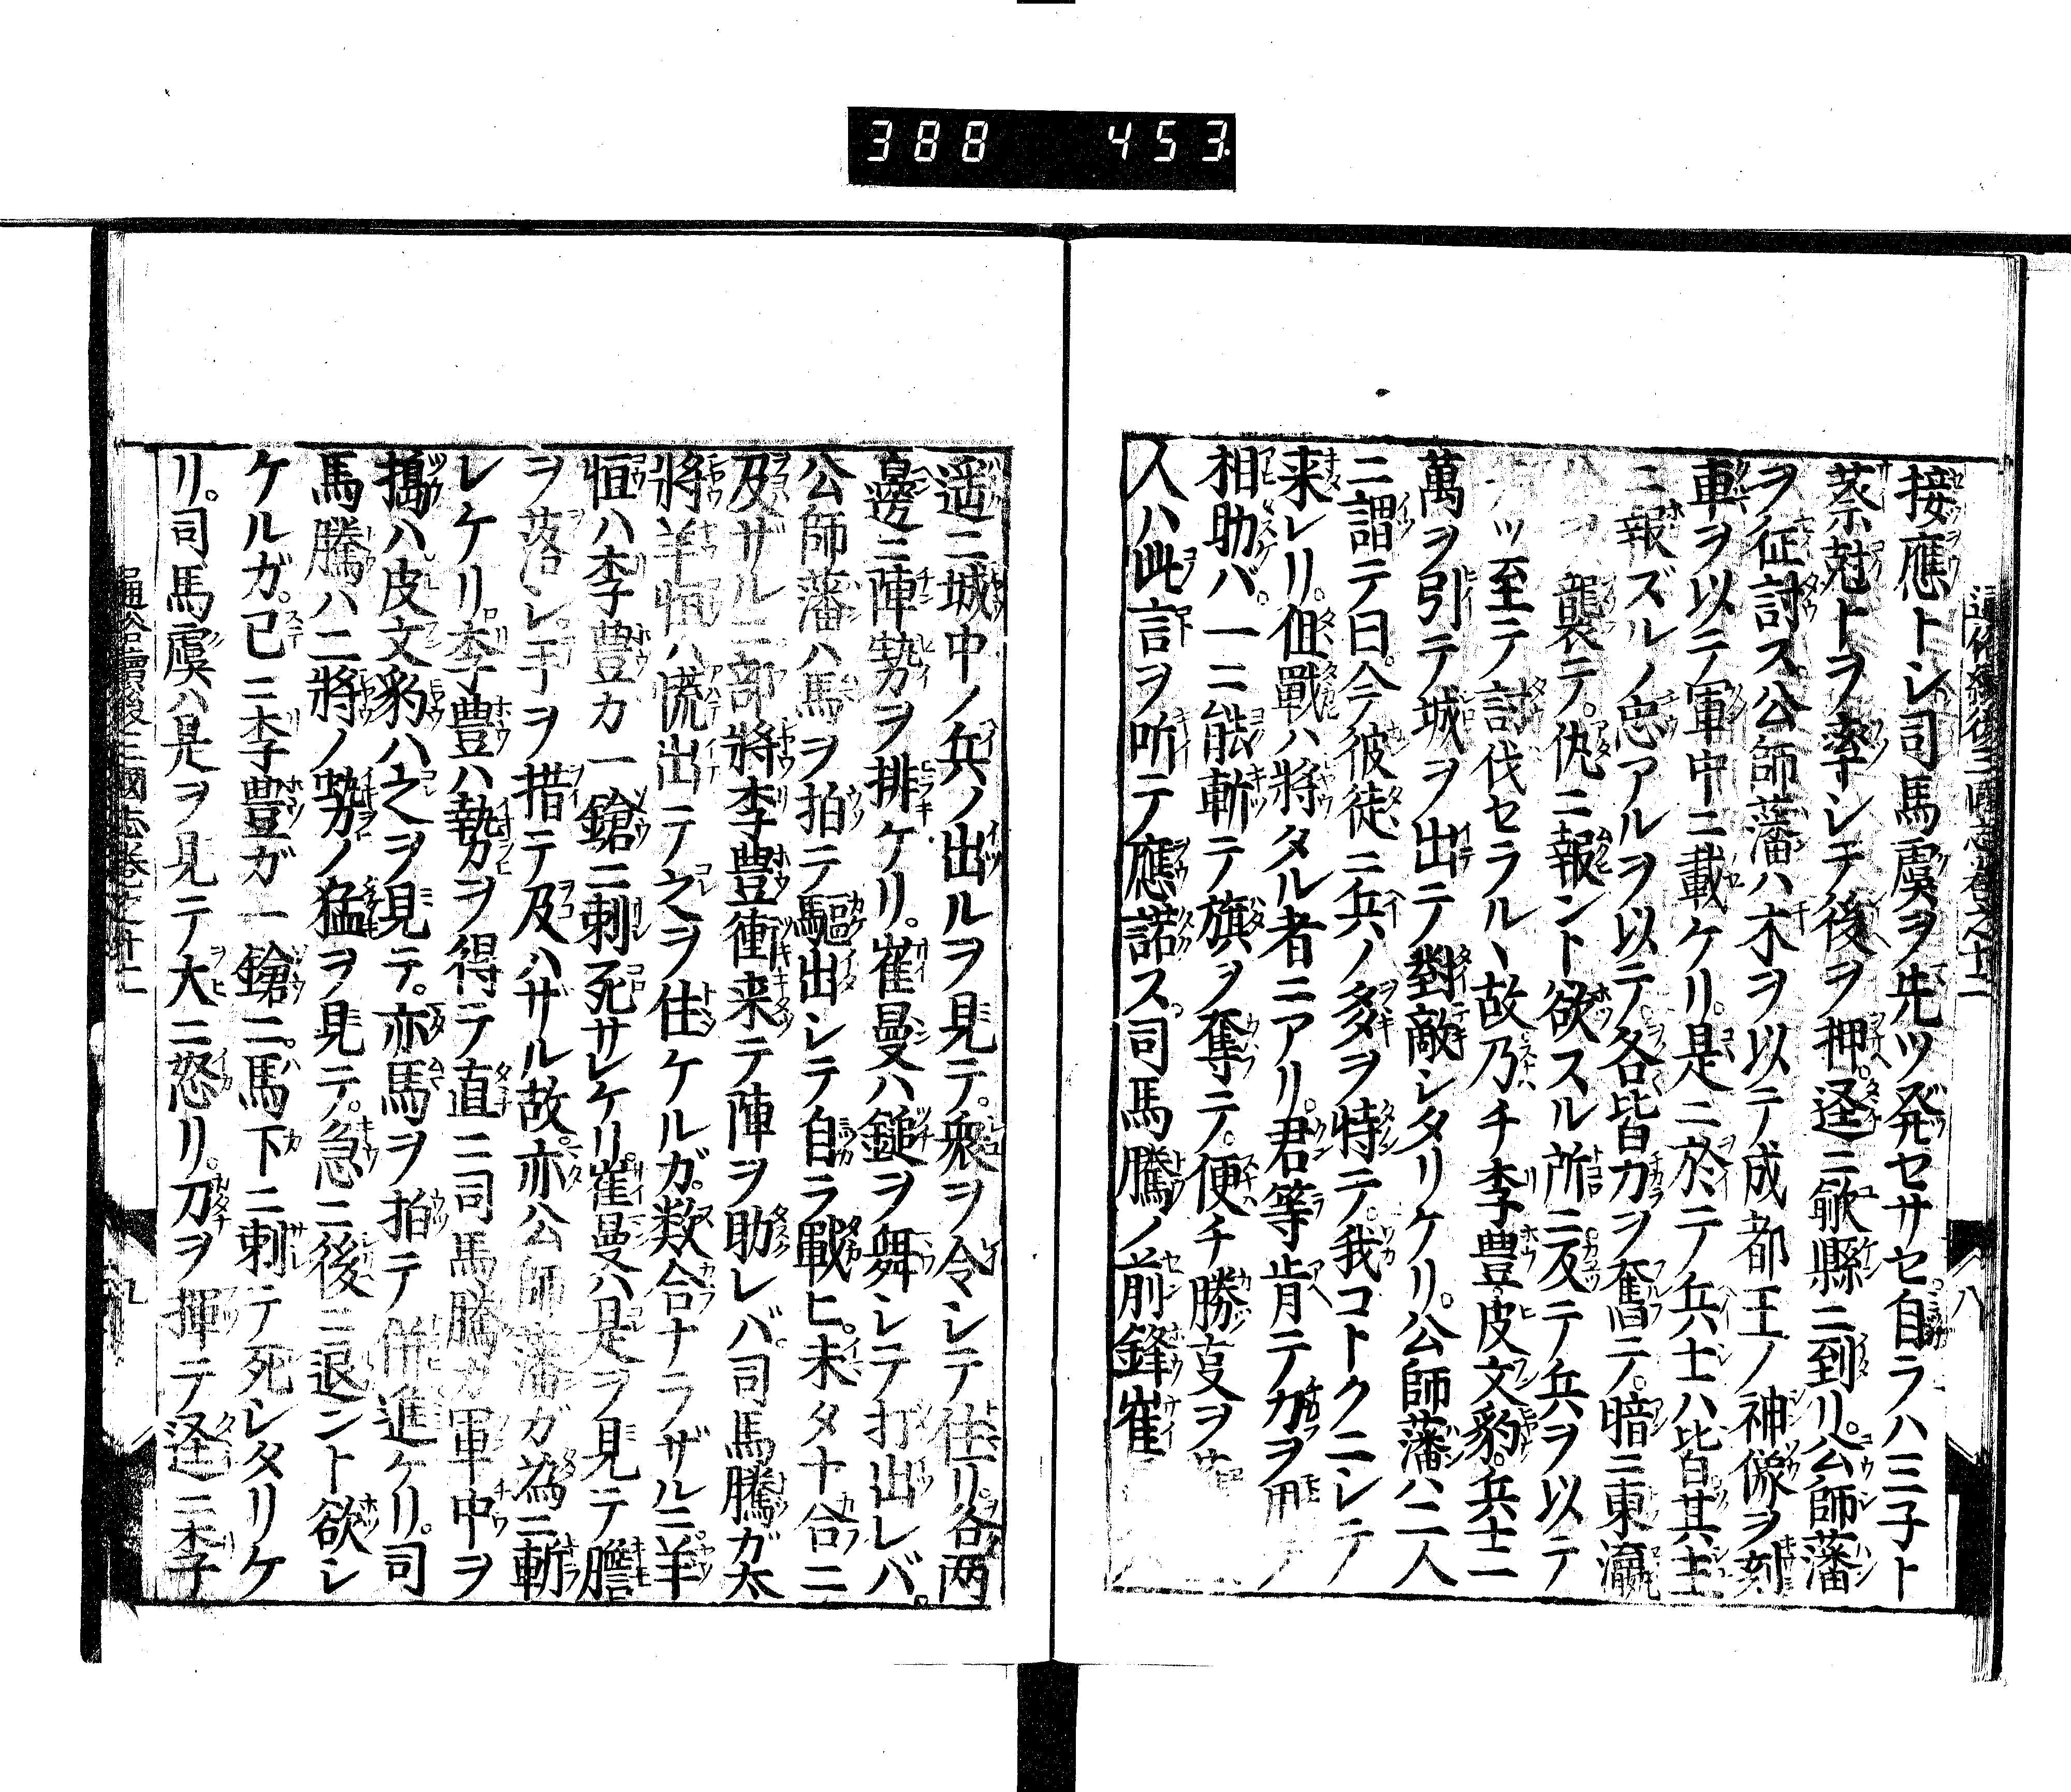 388 453
通俗續後三國志巻之十二
八
接應トシ司馬虞ヲ先ツ発セサセ自ラハ三子ト
蔡尅トヲ率シテ後ヲ押逕ニ鄃縣ニ到リ公師藩
ヲ征討ス公師藩ハ木ヲ以テ成都王ノ神像ヲ刻
車ヲ以テ軍中ニ載ケリ是ニ於テ兵士ハ皆其主
ニ報ズルノ忠アルヲ以テ各皆力ヲ奮ニテ暗ニ東瀛
襲テ仇ニ報ント欲スル所ニ反テ兵ヲ以テ
ツ至テ討伐セラルヽ故乃チ李豊皮文豹兵士一
萬ヲ引テ城ヲ出テ對敵シタリケリ公師藩ハ二人
ニ謂テ曰今彼徒ニ兵ノ多ヲ恃テ我コトクニシテ
来レリ但戰ハ將タル者ニアリ君等肯テ力ヲ用テ
相助バ一ニ能斬テ旗ヲ奪テ便チ勝㕝ヲ
人ハ此言ヲ听テ應諾ス司馬騰ノ前鋒崔
遥ニ城中ノ兵ノ出ルヲ見テ衆ヲ令シテ住リ各両
邊ニ陣勢ヲ排ケリ崔曼ハ鎚ヲ舞シテ打出レバ
公師藩ハ馬ヲ拍テ驅出シテ自ラ戰ヒ未タ十合ニ
及ザルニ部將李豊衝来テ陣ヲ助レバ司馬騰ガ太
將羊恒ハ慌出テ之ヲ住ケルガ数合ナラザルニ羊
恒ハ李豊カ一鎗ニ刺死サレケリ崔曼ハ是ヲ見テ膽
ヲ落シ手ヲ措テ及ハザル故亦公師藩ガ為ニ斬
レケリ李豊ハ勢ヲ得テ直ニ司馬騰カ軍中ヲ
搗ハ皮文豹ハ之ヲ見テ亦馬ヲ拍テ併進ケリ司
馬騰ハ二將ノ勢ノ猛ヲ見テ急ニ後ニ退ント欲シ
ケルガ已ニ李豊ガ一鎗ニ馬下ニ刺テ死シタリケ
リ司馬虞ハ是ヲ見テ大ニ怒リ刀ヲ揮テ逕ニ李
通俗續後三國志巻之十二
九